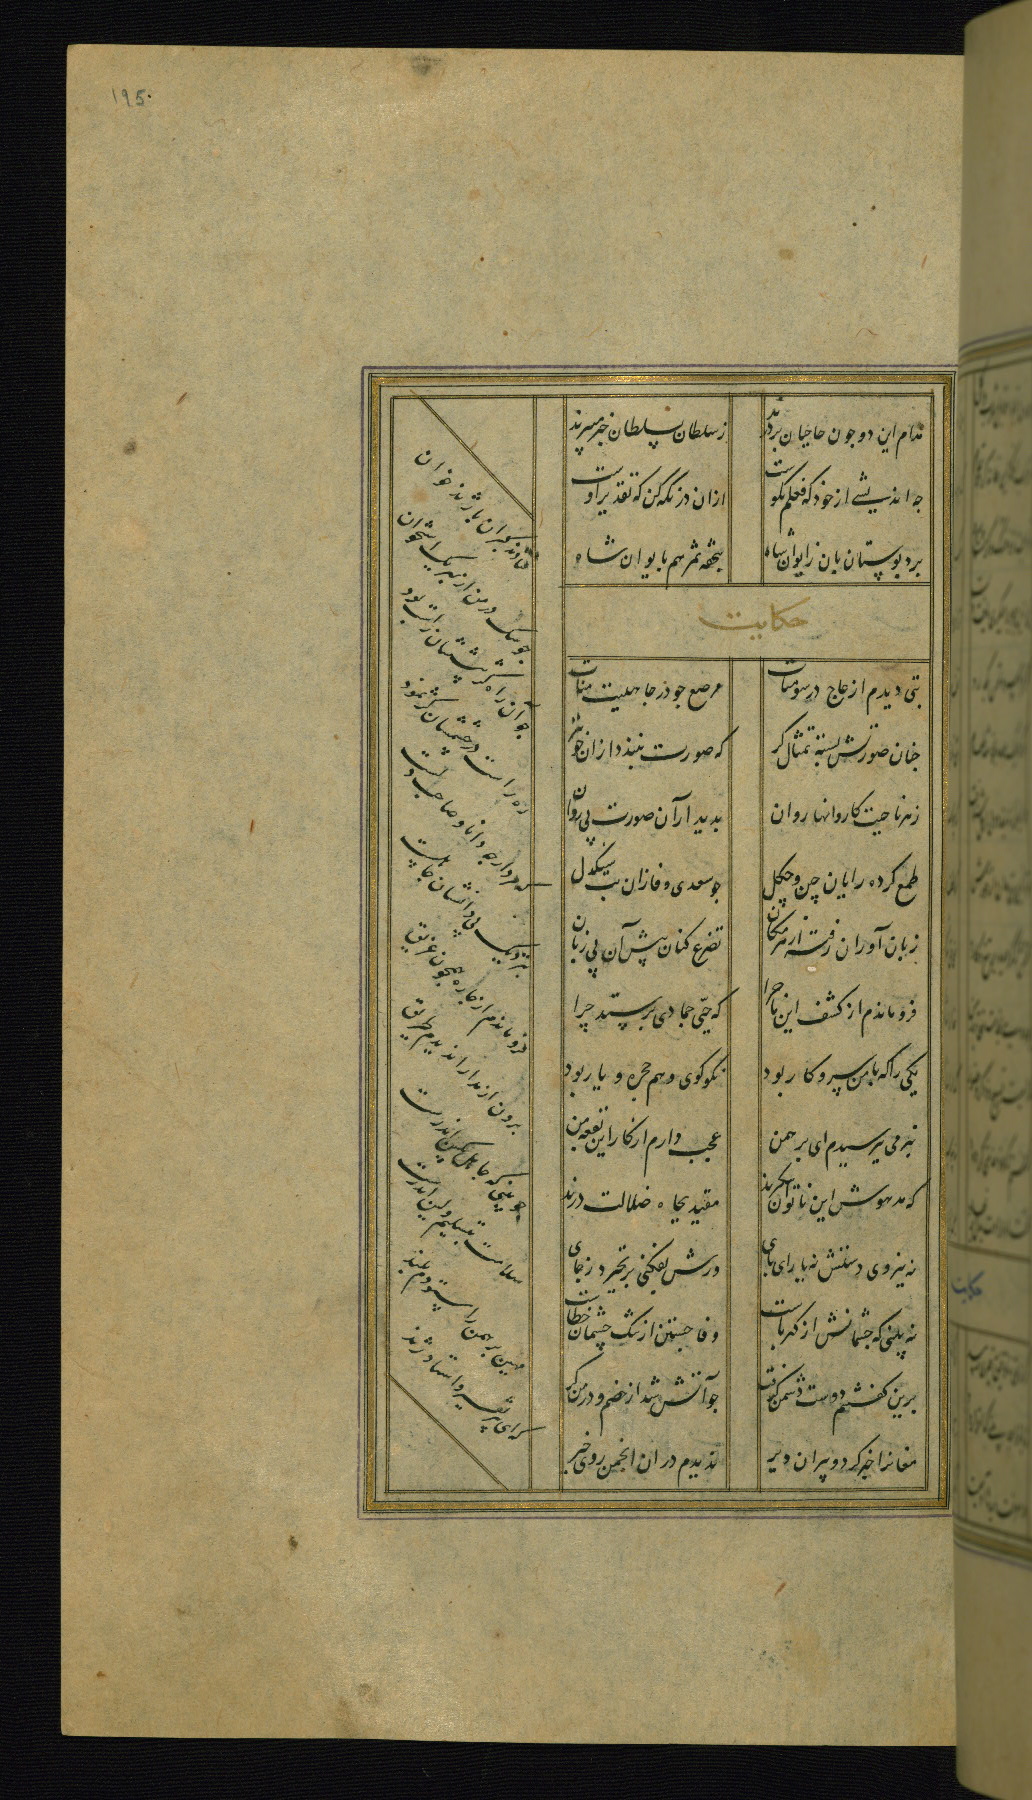 ۱۹۵
مدام این دو چون حاجبان بردرند
ز سلطان بسلطان خبر میبرند
چه اندیشی از خود که فعلم نکوست
ازان در نکه کن که تقدیر اوست
برد بوستان بان ز ایوان شاه
بتحفه ثمر هم بایوان شاه
حکایت
بتی دیدم از عاج در سومنات
مرصع چو در جاهلیت منات
چنان صورتش بسته تمثال کر
که صورت نبندد ازان خوبتر
ز هر ناحیت کاروانها روان
بدیدار آن صورت بی روان
طمع کرده رایان چین و چکل
چو سعدی وفا زان بت سنکدل
زبان آوران رفته از هر مکان
تضرع کنان پیش آن بی زبان
فرو ماندم از کشف این ماجرا
که حیی جمادی پرستد چرا
یکی را که با من سر و کار بود
نکوکوی و هم حجره و یار بود
بنرمی بپرسیدم ای برهمن
عجب دارم از کار این بقعه من
که مدهوش این ناتوان پیکرند
مقید بچاه ضلالت درند
نه نیروی دستش نه یارای پای
ورش بفکنی بر نخیزد ز جای
نه بینی که چشمانش از کهرباست
وفا جستن از تنک چشمان خطاست
برین کفتم دوست دشمن کرفت
چو آتش شد از خشم و در من کرفت
مغانرا خبر کرد و پیران دیر
ندیدم در آن انجمن روی خیر
فتادند کبران پازند خوان
چو سک در من از بهر یک استخوان
چو آن راه کژ پیششان راست بود
ره راست در چشمشان کژ نمود
که مرد ار چه دانا و صاحب دلست
بنزدیک بی دانشان جاهلست
فرو ماندم از چاره همچون غریق
برون از مدارا ندیدم طریق
چو بینی که جاهل بکین اندرست
سلامت بتسلیم و لین اندرست
مهین برهمن را ستودم بلند
که ای پیر تفسیر و استا و زند